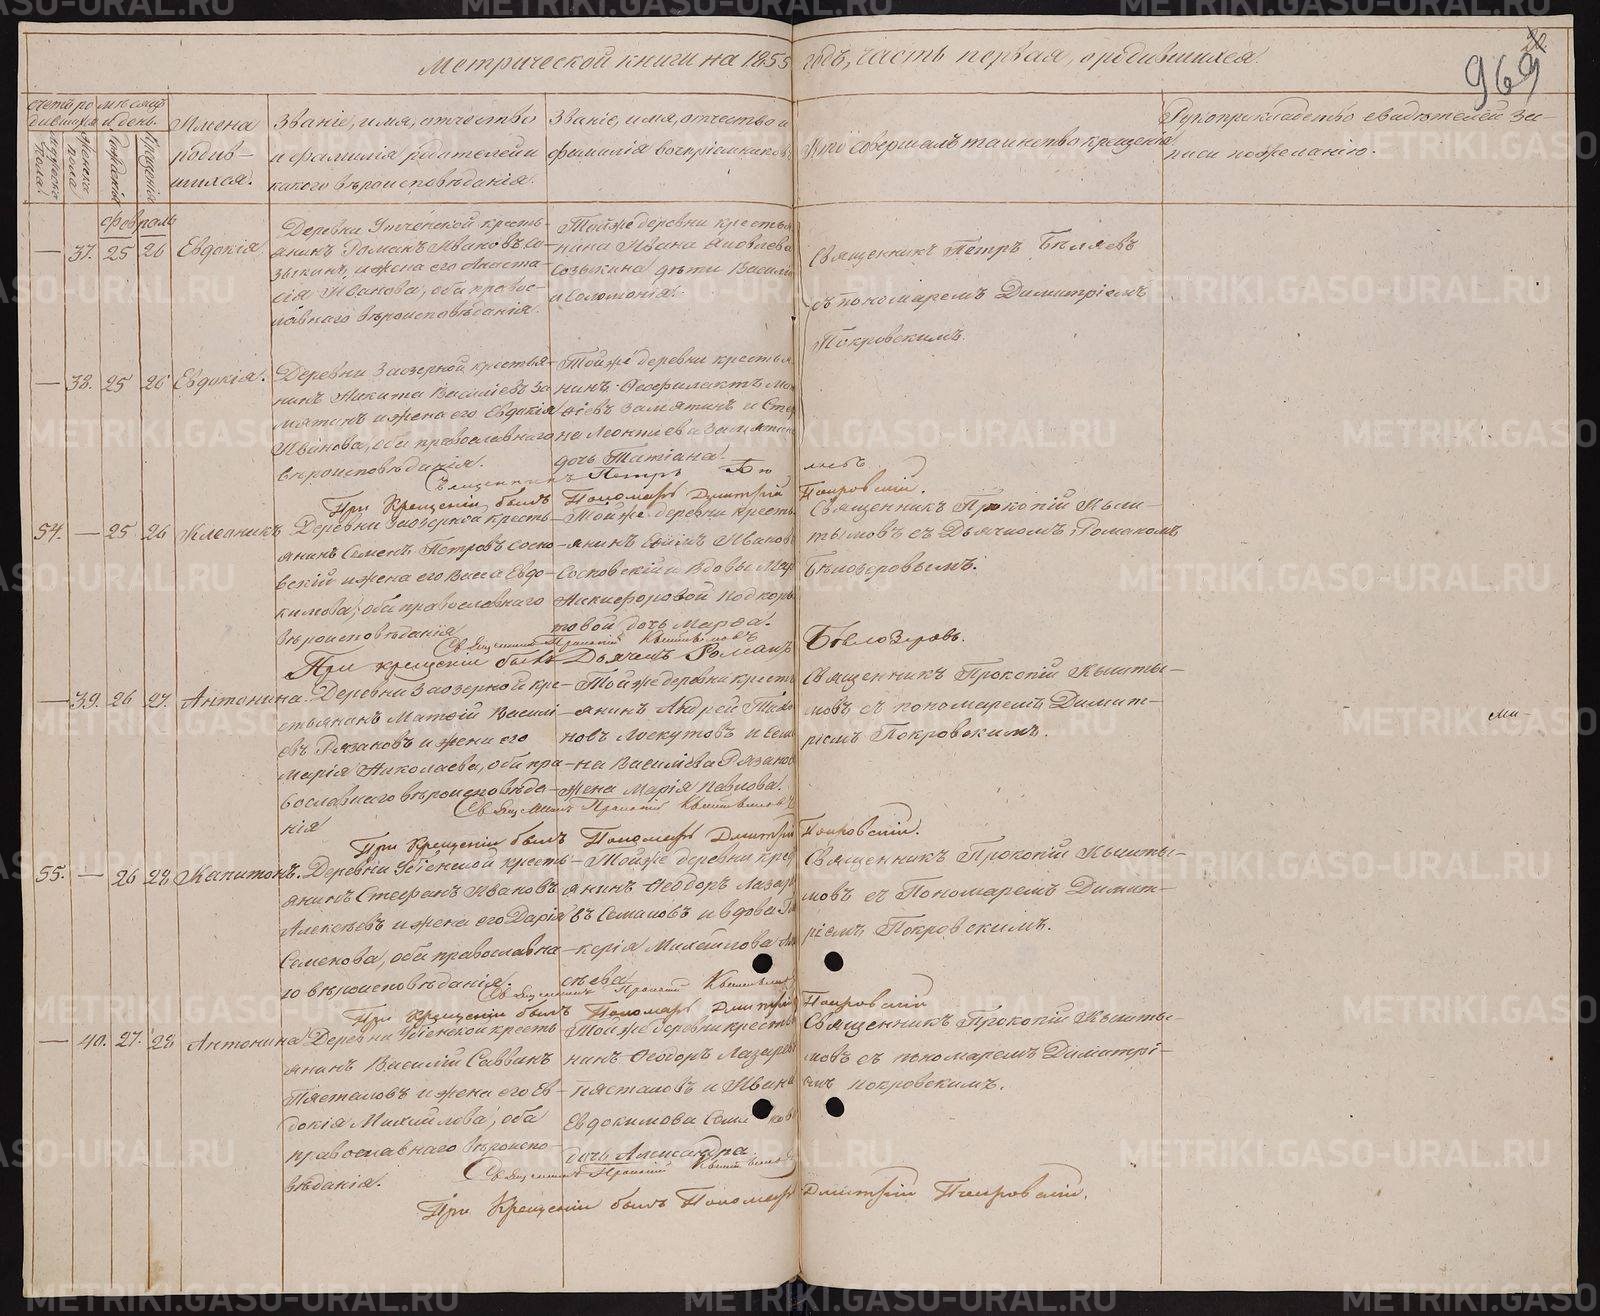 Метрической книги на 1855 годъ, часть первая, о родившихся
969
Счетъ родившихся
мѣсяцъ и день.
мужеска пола.
женска пола
рожденія
крещенія
Имена родив-
шихся.
Званіе, имя, отчество
и фамилія родителей и
какого вѣроисповѣданія.
Званіе, имя, отчество и
фамилія воспріемниковъ
Кто совершалъ таинство крещенія
Рукоприкладство свидѣтелей за-
писи по желанію.
Февраль
— 37. 25 26 Евдокія
Деревни кресть-
янинъ Романъ Ивановъ Со-
зыкинъ, и жена его Анаста-
сія Иванова, оба правос-
лавнаго вѣроисповѣданія.
Той же деревни крестья-
нина Ивана Яковлева
Созыкина дѣти Василій
и Соломонія.
Священникъ Петръ Бѣляевъ
съ пономаремъ Димитріемъ
Покровскимъ.
— 38. 25 26 Евдокія.
Деревни Заозерной крестья-
нинъ Никита Василіевъ За-
мятинъ и жена его Евдокія
Иванова, оба православнаго
вѣроисповѣданія.
Той же деревни крестья-
нинъ Феофилактъ
Замятинъ и
Леонтіева
дочь Татіана.
Священникъ Петръ
При Крещеніи былъ Пономарь Дмитрій Покровскій.
54. — 25 26
Деревни Заозерной кресть-
янинъ Семенъ Петровъ Соско-
вскій и жена его Васса Евдо-
кимова, оба православнаго
вѣроисповѣданія
Той же деревни кресть-
янинъ Ивановъ
Сосковскій и вдовы
Никифоровой Подкоры-
товой дочь Марѳа.
Священникъ Прокопій Кышты-
мовъ съ Дьячкомъ Романомъ
Бѣлозеровымъ.
Священникъ Прокопій Кыштымовъ
При крещеніи былъ Дьячекъ Романъ Бѣлозеровъ.
— 39. 26 27. Антонина.
Деревни Заозерной кре-
стьянинъ Матѳій Василі-
евъ Рязановъ и жена его
Марія Николаева, оба пра-
вославнаго вѣроисповѣда-
нія
Той же деревни кресть-
янинъ Андрей
Лоскутовъ и
Василіева Рязанова
жена Марія Павлова.
Священникъ Прокопій Кышты-
мовъ съ пономаремъ Димит-
ріемъ Покровскимъ.
Священникъ Прокопій Кыштымовъ
При Крещеніи былъ Пономарь Дмитрій Покровскій.
55. — 26 28 Капитонъ.
Деревни кресть-
янинъ Стефанъ Ивановъ
Алексѣевъ и жена его Дарія
Семенова, оба православна-
го вѣроисповѣданія.
Той же деревни кре-
янинъ Ѳеодоръ Лазаре-
въ и вдова
Михайлова
Священникъ Прокопій Кышты-
мовъ съ Пономаремъ Димит-
ріемъ Покровскимъ.
Священникъ Прокопій Кыштымовъ
При Крещеніи былъ Пономарь Дмитрій Покровскій
— 40. 27. 28 Антонина
Деревни кресть-
янинъ Василій Саввинъ
Пястоловъ и жена его Ев-
докія Михайлова, оба
православнаго вѣроиспо-
вѣданія.
Той же деревни крестья-
нинъ Ѳеодоръ Лазаревъ
Пястоловъ и Ивана
Евдокимова
дочь Александра.
Священникъ Прокопій Кышты-
мовъ съ пономаремъ Димитрі-
емъ Покровскимъ.
Священникъ Прокопій Кыштымовъ
При Крещеніи былъ Пономарь Дмитрій Покровскій.
METRIKI.GASO-URAL.RU